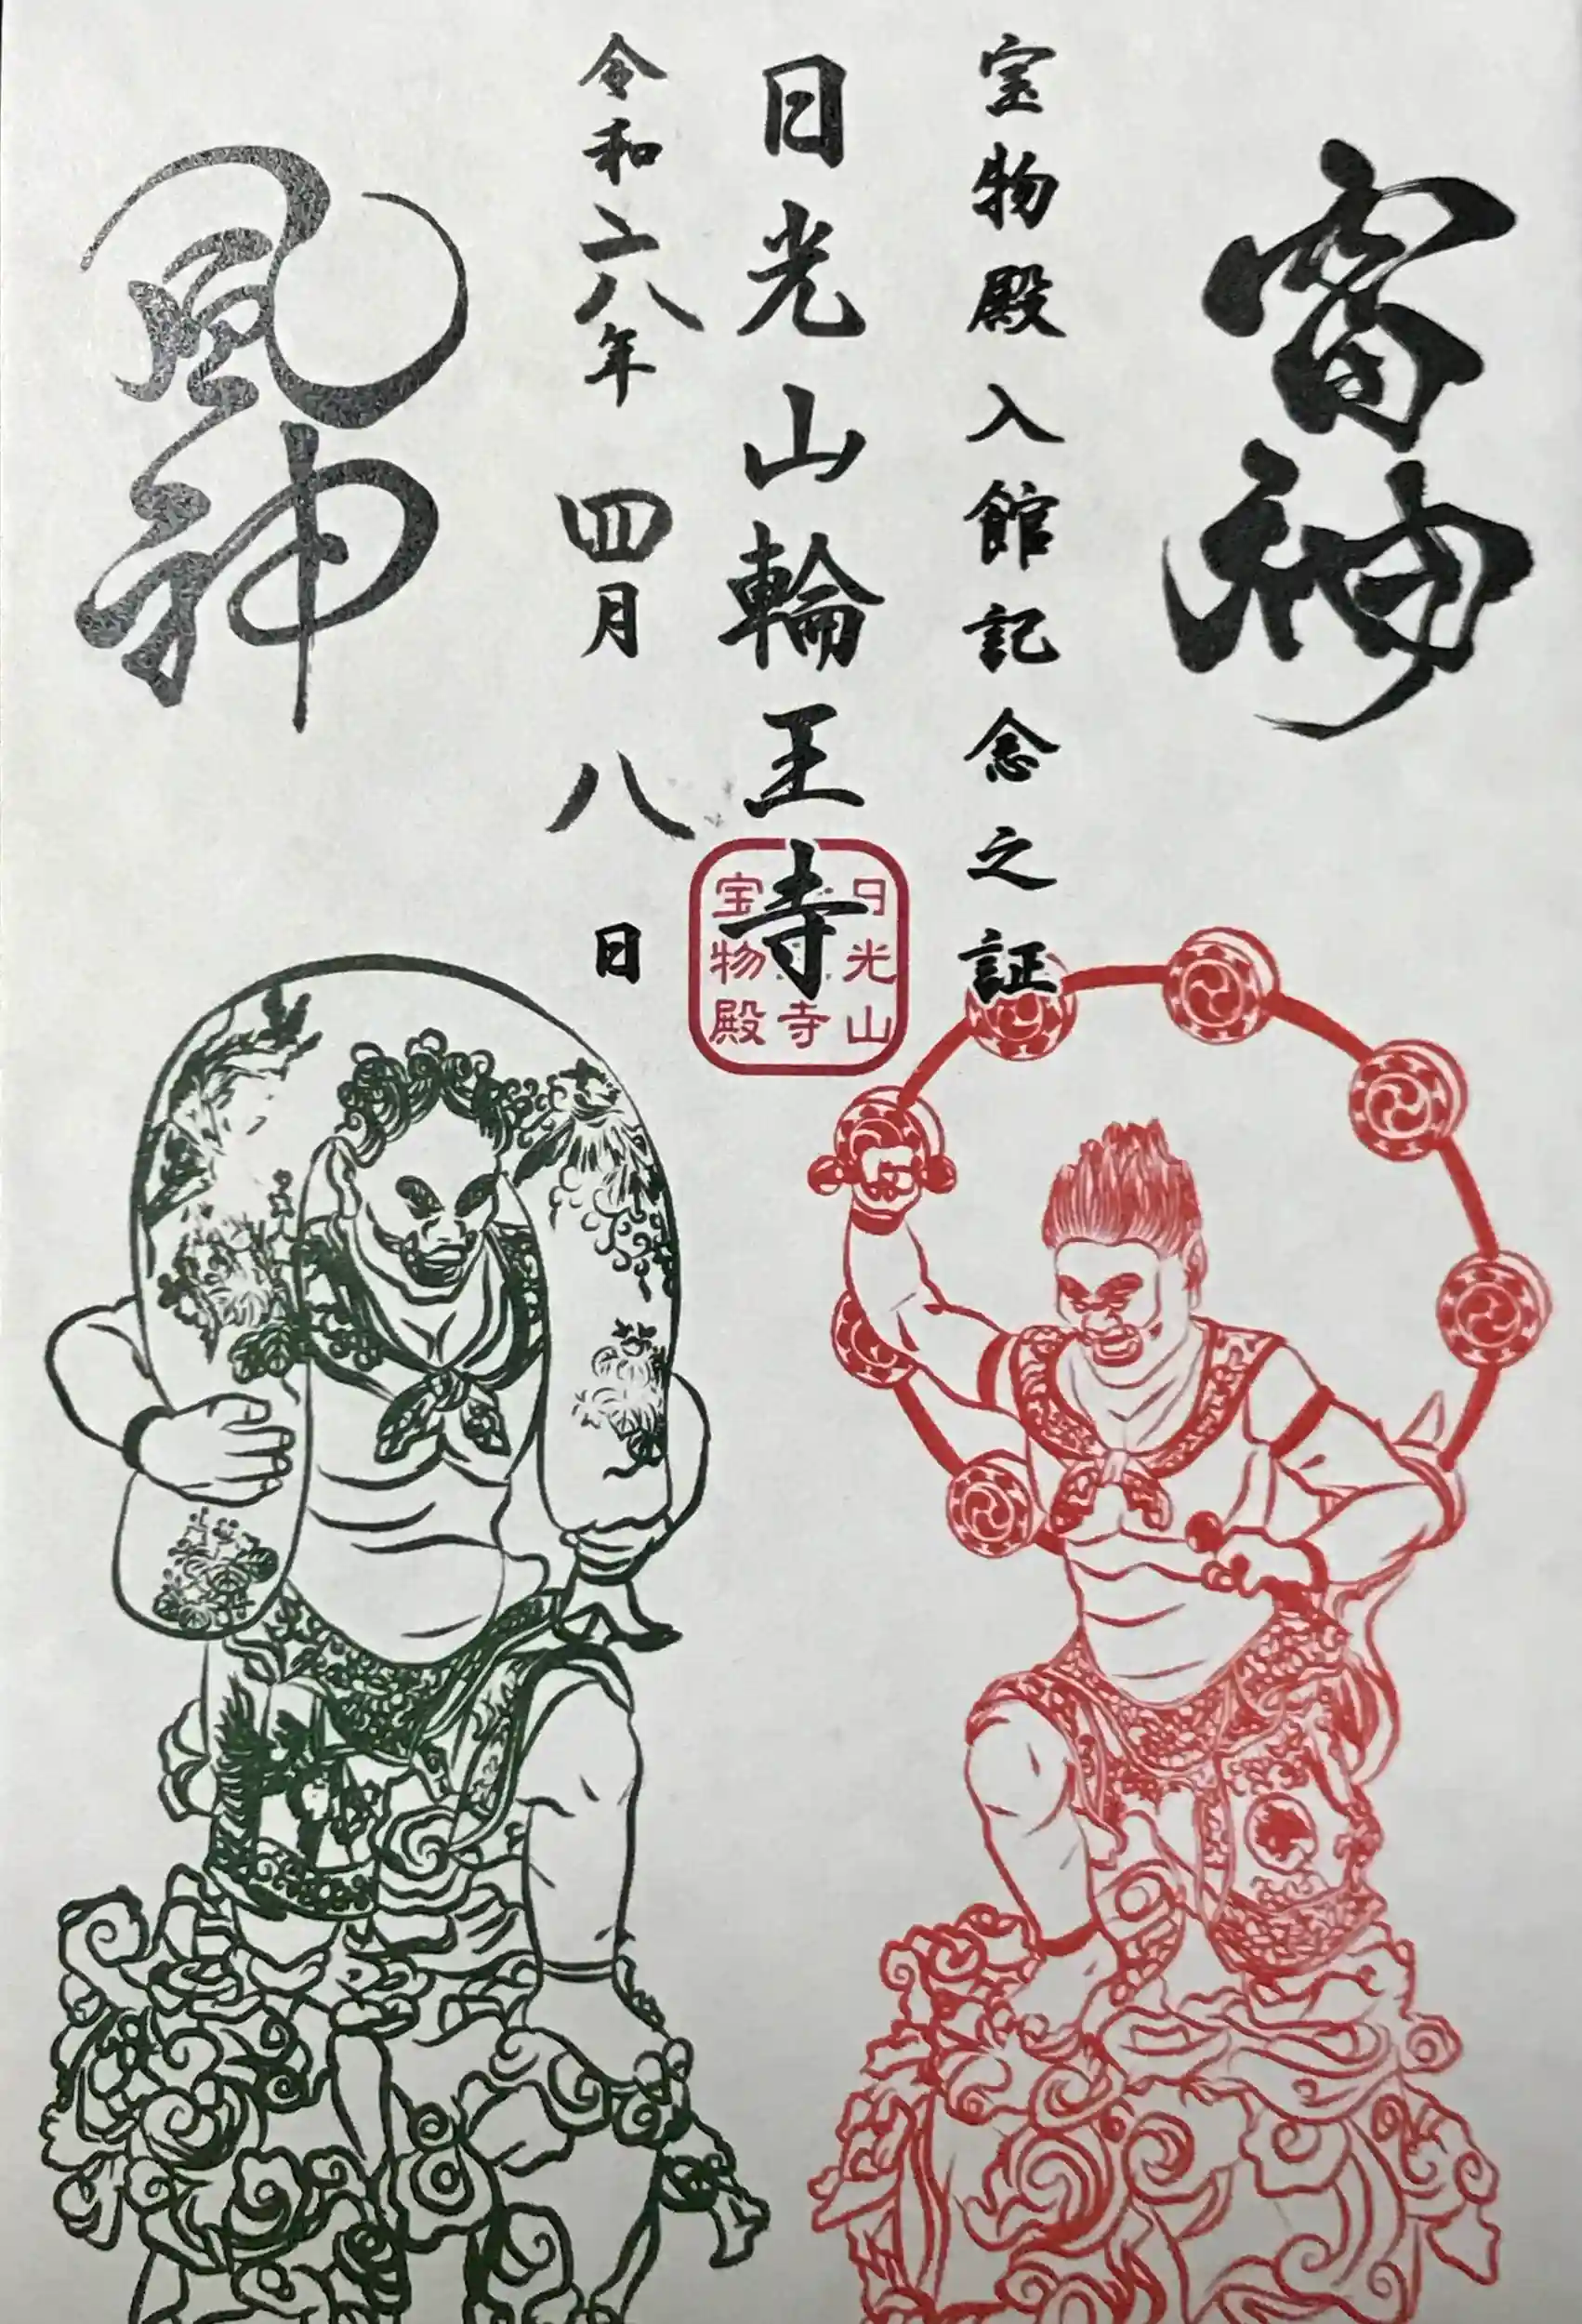 雷神
宝物殿入館記念之証
日光山輪王寺
令和六年四月八日
風神
日光山
寺
宝物殿